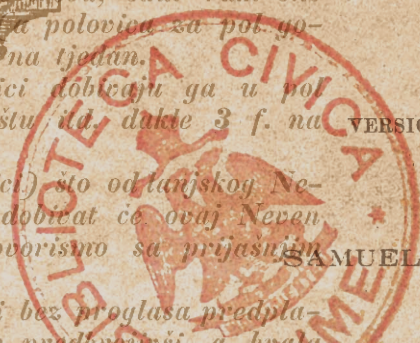 a polovica za pol go-
na tjedan.
ici dobivaju ga u pol
štu itd. dakle 3 f. na
VERSIO
ci) što od lanjskog Ne-
dobivat će ovaj Neven
ovorismo sa prijašnjim
SAMUEL
i bez proglasa predpla-
BIBLIOTECA CIVICA *